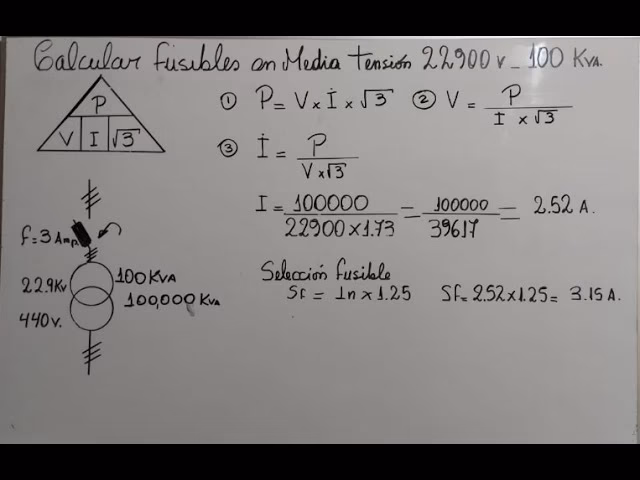 Calcular fusibles en Media tensión 22900 v - 100 Kva.
P
V I √3
① P = V x I x √3 ② V = P / I x √3
③ I = P / V x √3
I = 100000 / 22900 x 1.73 = 100000 / 39617 = 2.52 A.
f = 3 Amp.
22.9Kv 100 KVA
100,000 KVA
440 v.
Selección fusible
Sf = In x 1.25 Sf = 2.52 x 1.25 = 3.15 A.